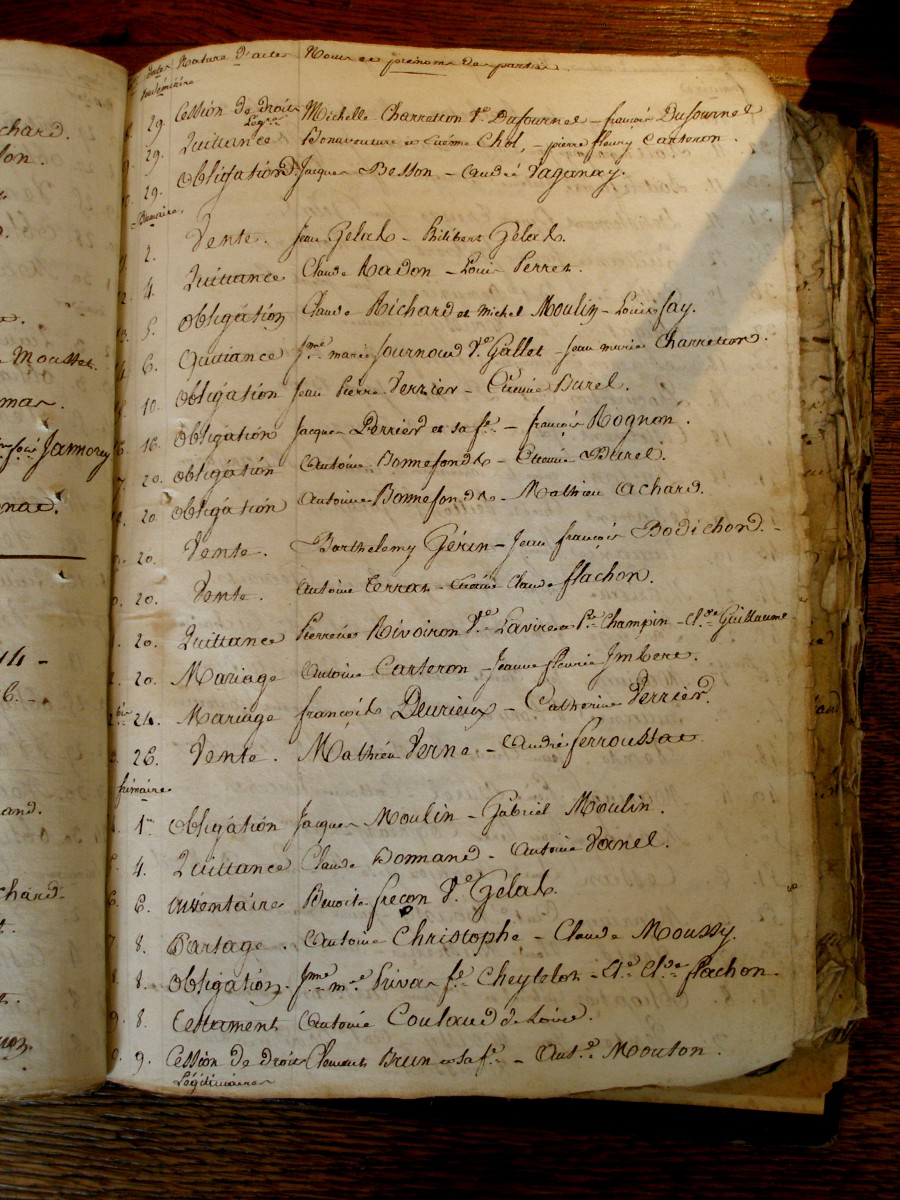 dates Nature d'actes Noms et prénoms des parties
Vendémiaire
29. Cession de droits Michelle Charretton Ve. Dufournel - françois Dufournel
Legit.es
29. Quittance Bonaventure et Etienne Chol, - pierre fleury Carteron.
29. Obligation Jacques Besson - André Vaganay.
Brumaire.
2. Vente. Jean Gelas - Philibert Gelas.
4. Quittance Claude Radon - Louis Perret.
5. Obligation Claude Richard et Michel Moulin - Louis fay.
6. Quittance Jme. marie Journoud Ve. Gallet - Jean marie Charretton.
10. Obligation Jean Pierre Verrier - Etienne Burel.
16. Obligation Jacques Perrier et sa fe. - françois Rognon.
20. Obligation Antoine Bonnefonds - Etienne Burel.
20. Obligation Antoine Bonnefonds - Mathieu Achard.
20. Vente. Barthelemy Gérin - Jean françois Bodichond.
20. Vente. Antoine Terras - Claude flachon.
20. Quittance Pierrette Rivoiron Ve. Champin - Cl.de Guillaume
20. Mariage Antoine Carteron - Jeanne fleurie Imbert.
24. Mariage françois Deurieux - Catherine Verrier.
26. Vente. Mathieu Verne - André ferroussat
frimaire
1er Obligation Jacques Moulin - Gabriel Moulin.
4. Quittance Claude Bonnand - Antoine Vanel.
6. Inventaire Benoite frecon Ve. Gelas
8. Partage. Antoine Christophe - Claude Moussy.
8. Obligation. Jme. me. Priva fe. Cheytelot - Cl.de flachon.
8. Testament Antoine Coulaud de Loire.
9. Cession de droits Clement Brun et sa fe. - Ant.e Mouton.
Légitimaires
chard.
Mousset.
Jamorey
and.
chard.